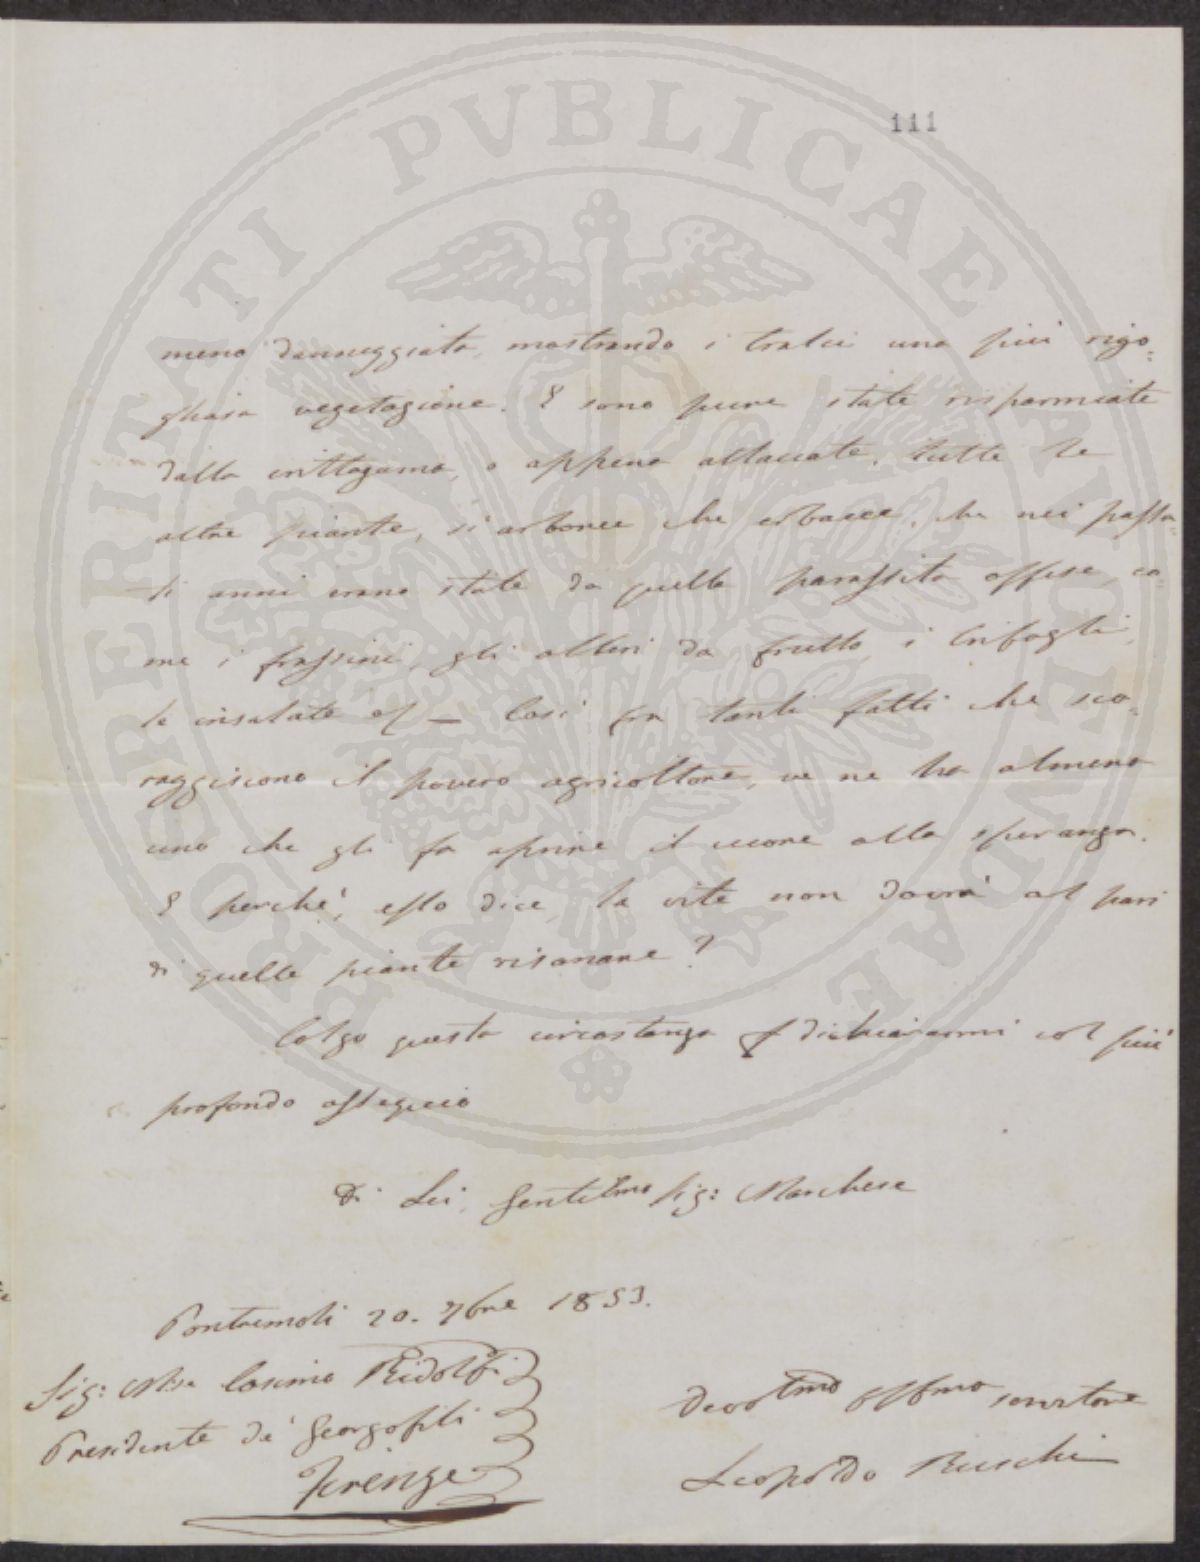 111
PROSPERITATI PVBLICAE AVGENDAE
meno danneggiata, mostrando i tralci una più rigo=
gliosa vegetazione. E sono pure state risparmiate
dalla crittogama, o appena attaccate, tutte le
altre piante, sì arboree che erbacee, che nei passa=
ti anni erano state da quella parassita offese, co=
me i frassini, gli alberi da frutto, i trifogli,
le insalate &c — Così fra tanti fatti che sco=
raggiscono il povero agricoltore, ve ne ha almeno
uno che gli fa aprire il cuore alla speranza.
E perchè, esso dice, la vite non dovrà al pari
di quelle piante risanare?
Colgo questa circostanza p dichiararmi col più
profondo ossequio
Di Lei, Gentilmo Sig: Marchese
Pontremoli 20. 7bre 1853.
Sig: Mse Cosimo Ridolfi
Presidente de' Georgofili
Firenze
Devotmo Obbmo servitore
Leopoldo Ruschi